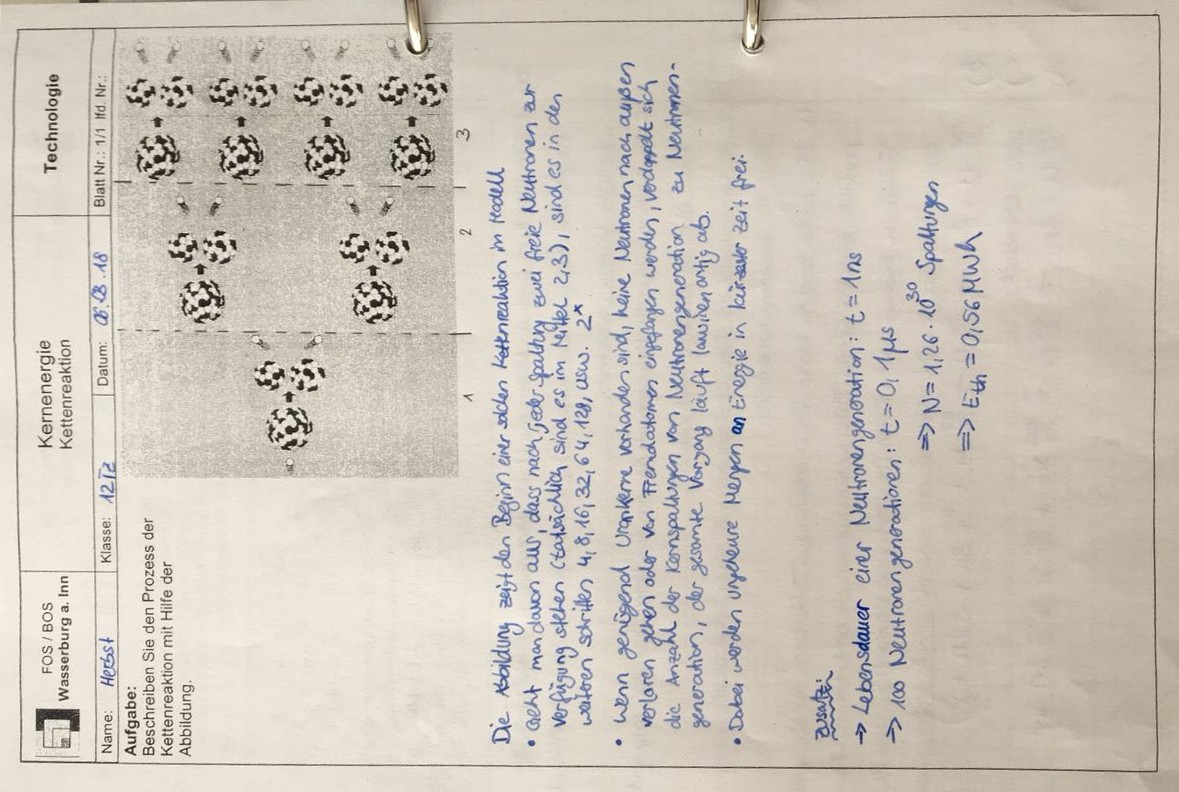 FOS / BOS
Wasserburg a. Inn
Kernenergie
Kettenreaktion
Technologie
Name: Herbst
Klasse: 12
Datum: .18
Blatt Nr.: 1/1 lfd. Nr.:
Aufgabe:
Beschreiben Sie den Prozess der
Kettenreaktion mit Hilfe der
Abbildung.
1
2
3
Die Abbildung zeigt den Beginn einer solchen Kettenreaktion im Modell
• Geht man davon aus, dass nach jeder Spaltung zwei freie Neutronen zur
Verfügung stehen (tatsächlich sind es im Mittel 2,3), sind es in den
weiteren Schritten 4, 8, 16, 32, 64, 128, usw. 2ˣ
• Wenn genügend Urankerne vorhanden sind, keine Neutronen nach außen
verloren gehen oder von Fremdatomen eingefangen werden, verdoppelt sich
die Anzahl der Kernspaltungen von Neutronengeneration zu Neutronen-
generation, der gesamte Vorgang läuft lawinenartig ab.
• Dabei werden ungeheure Mengen an Energie in kürzester Zeit frei.
Zusatz:
→ Lebensdauer einer Neutronengeneration: t = 1ns
=> 100 Neutronengenerationen: t = 0,1 µs
=> N = 1,26 · 10³⁰ Spaltungen
=> Eth = 0,56 MWh